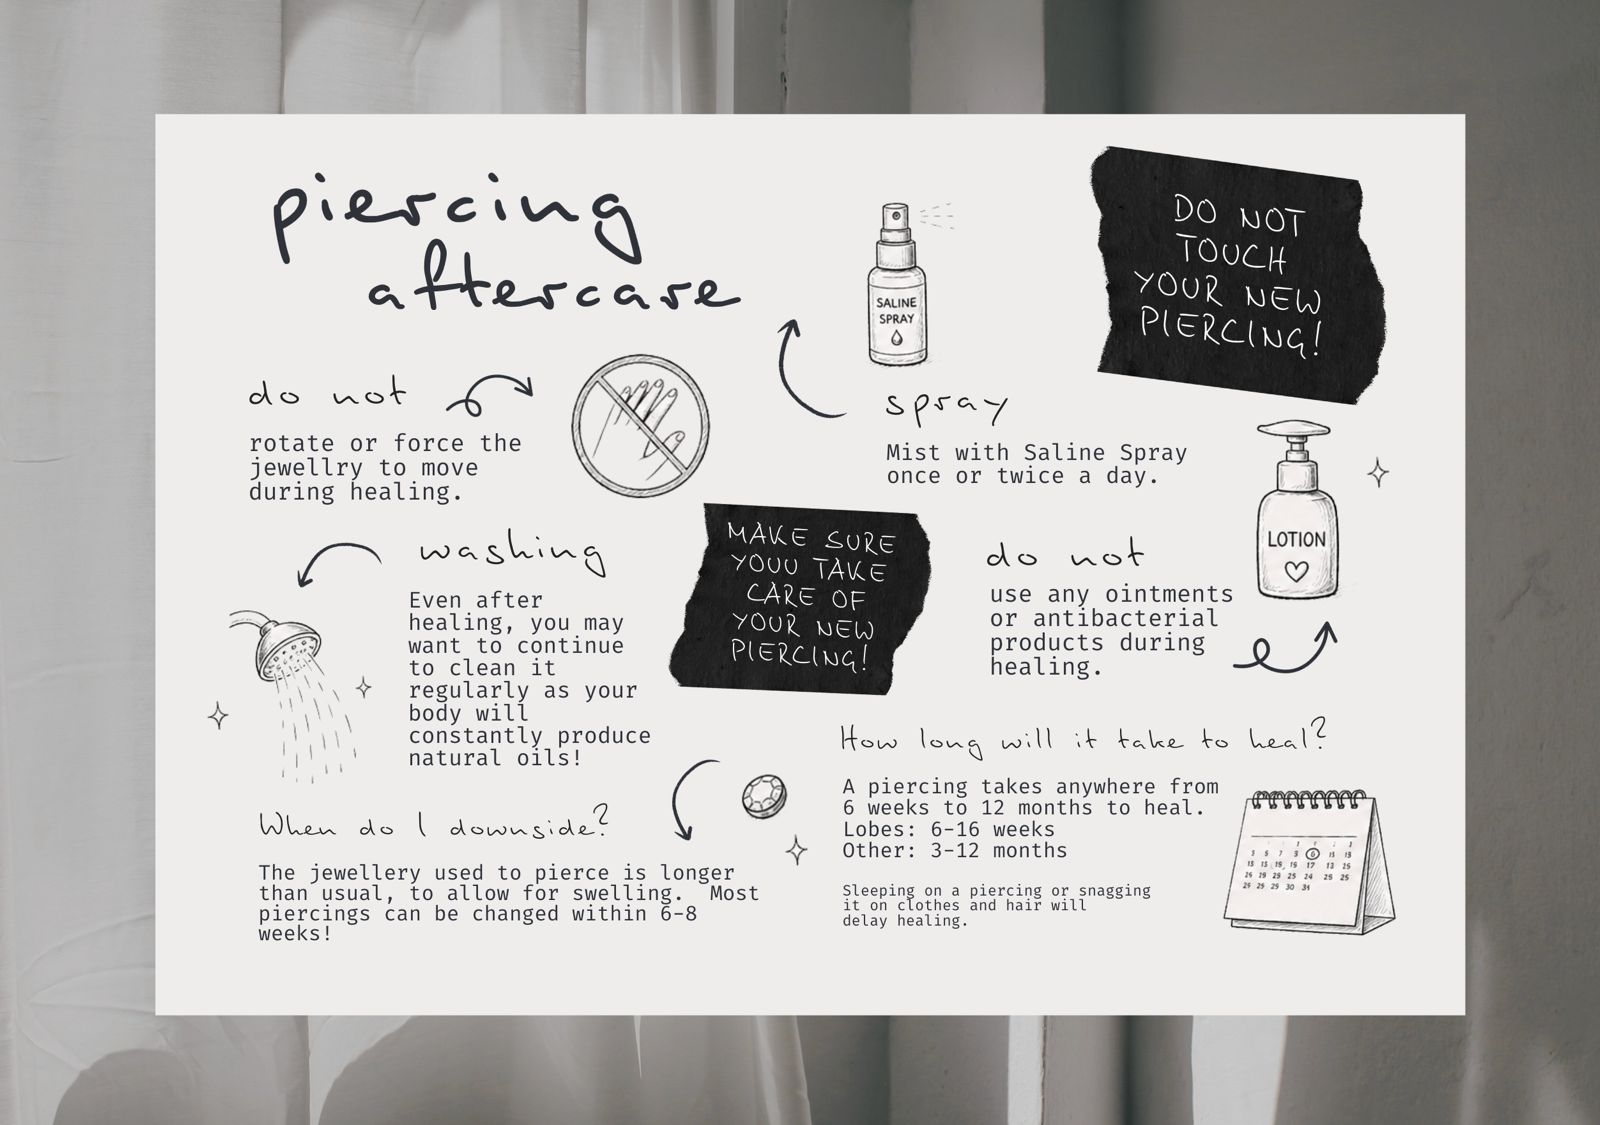 piercing
aftercare
SALINE
SPRAY
DO NOT
TOUCH
YOUR NEW
PIERCING!
do not
rotate or force the
jewellry to move
during healing.
spray
Mist with Saline Spray
once or twice a day.
LOTION
washing
Even after
healing, you may
want to continue
to clean it
regularly as your
body will
constantly produce
natural oils!
MAKE SURE
YOUU TAKE
CARE OF
YOUR NEW
PIERCING!
do not
use any ointments
or antibacterial
products during
healing.
When do I downside?
The jewellery used to pierce is longer
than usual, to allow for swelling.  Most
piercings can be changed within 6-8
weeks!
How long will it take to heal?
A piercing takes anywhere from
6 weeks to 12 months to heal.
Lobes: 6-16 weeks
Other: 3-12 months
Sleeping on a piercing or snagging
it on clothes and hair will
delay healing.